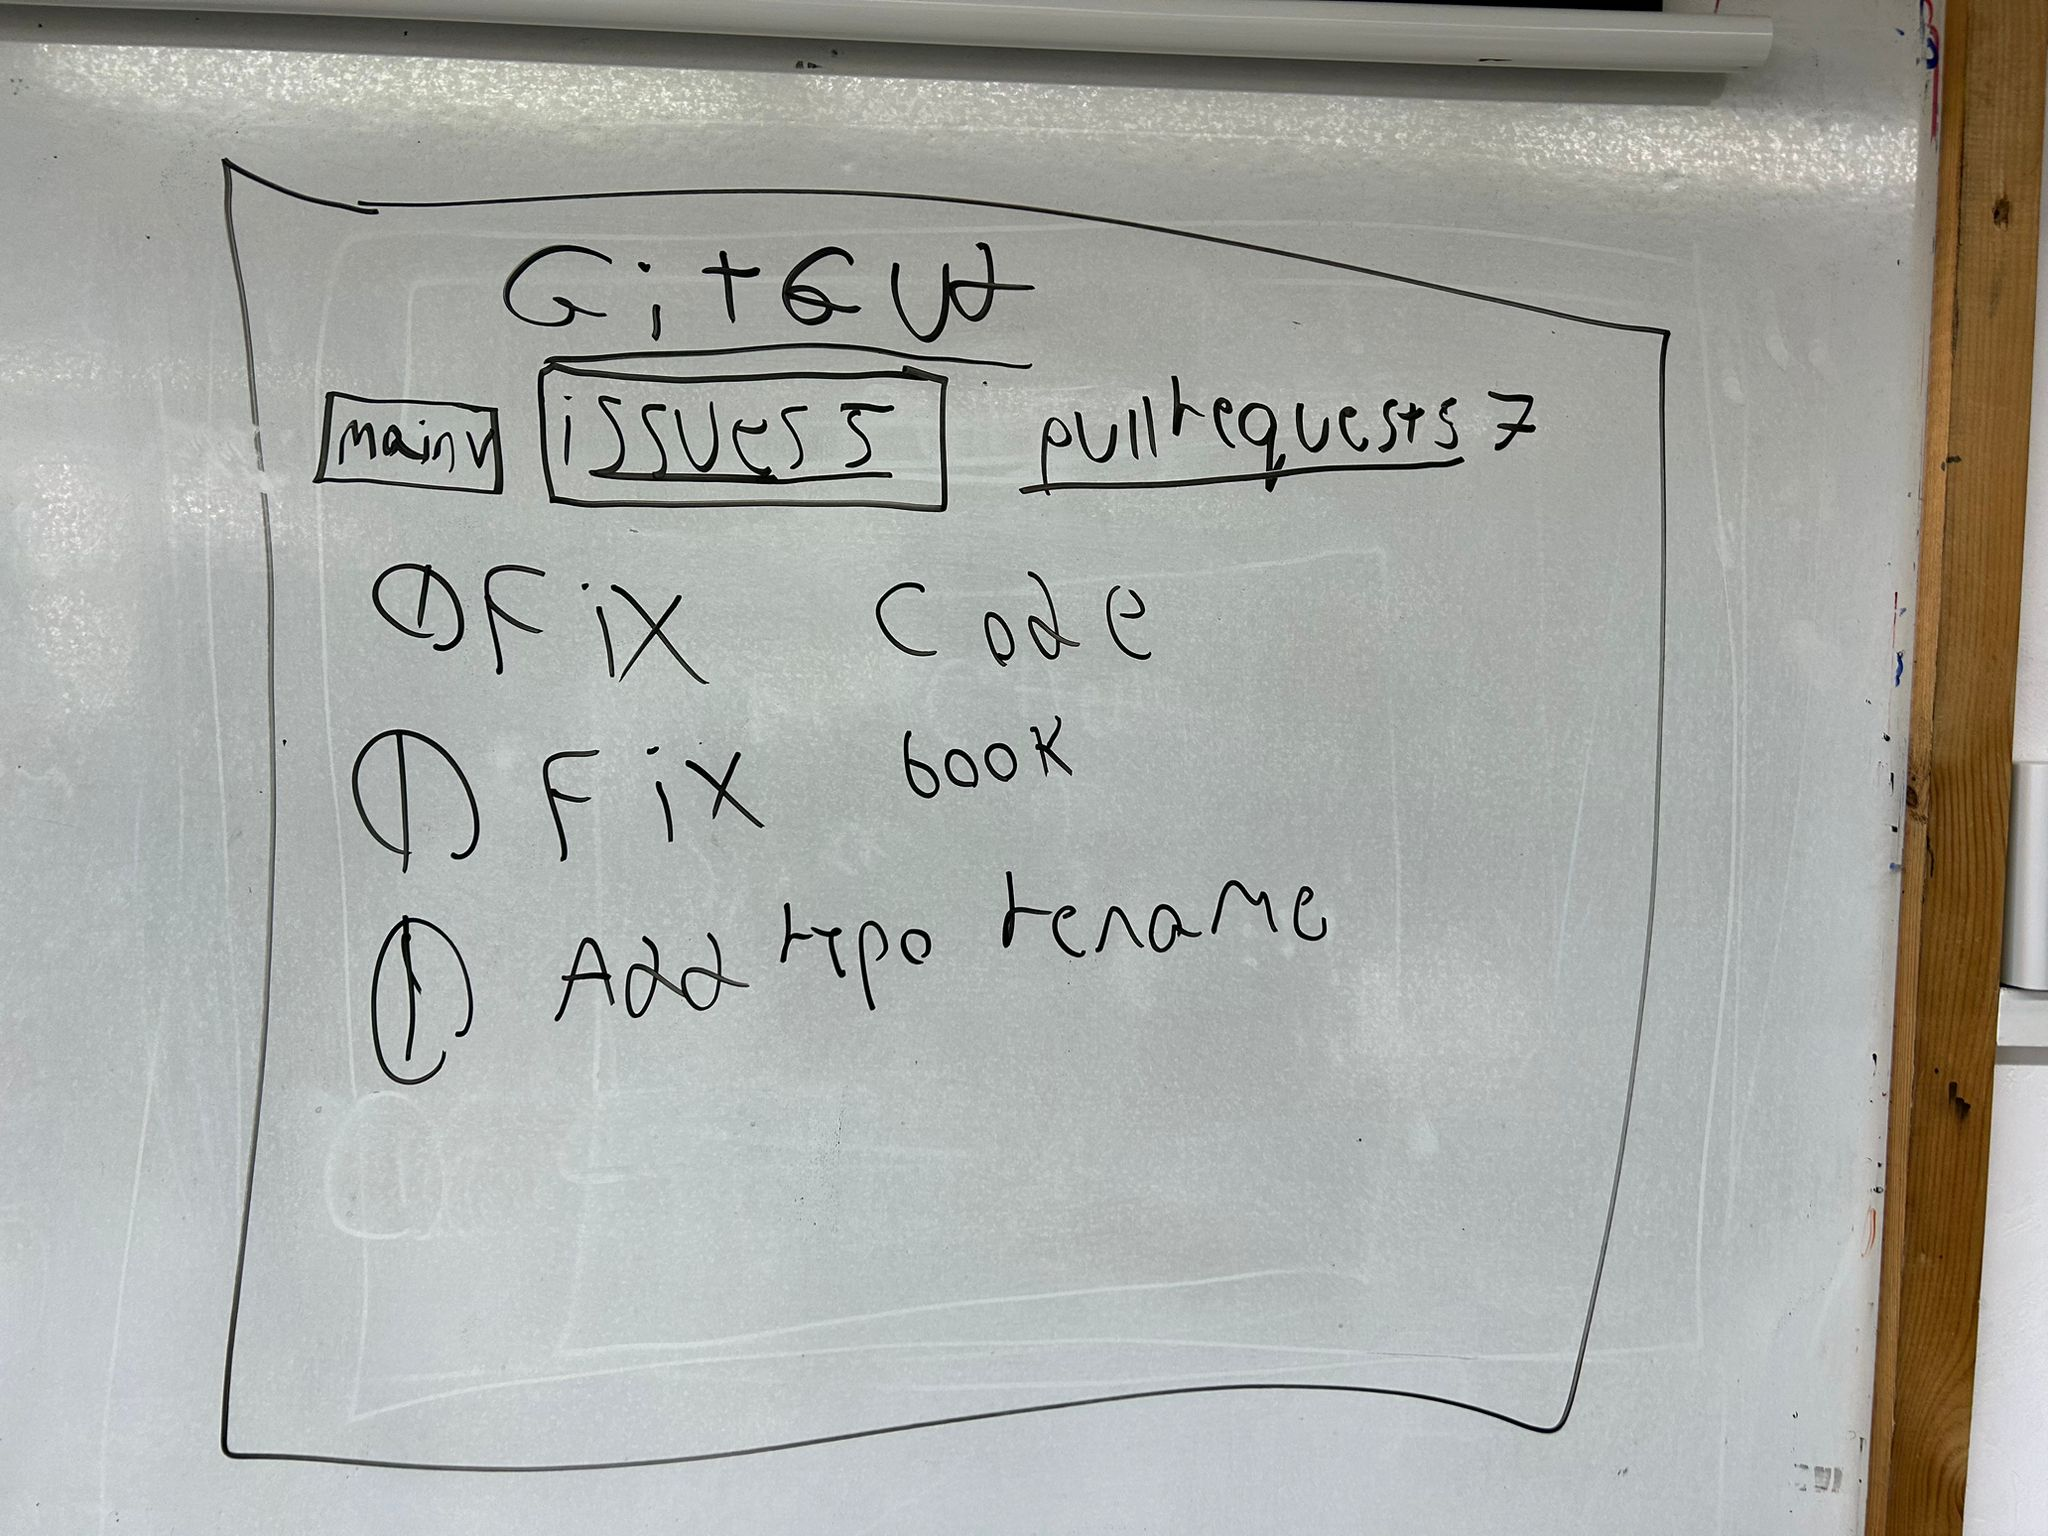 GitGud
main v issues 5 pull requests 7
① Fix Code
① Fix book
① Add repo rename